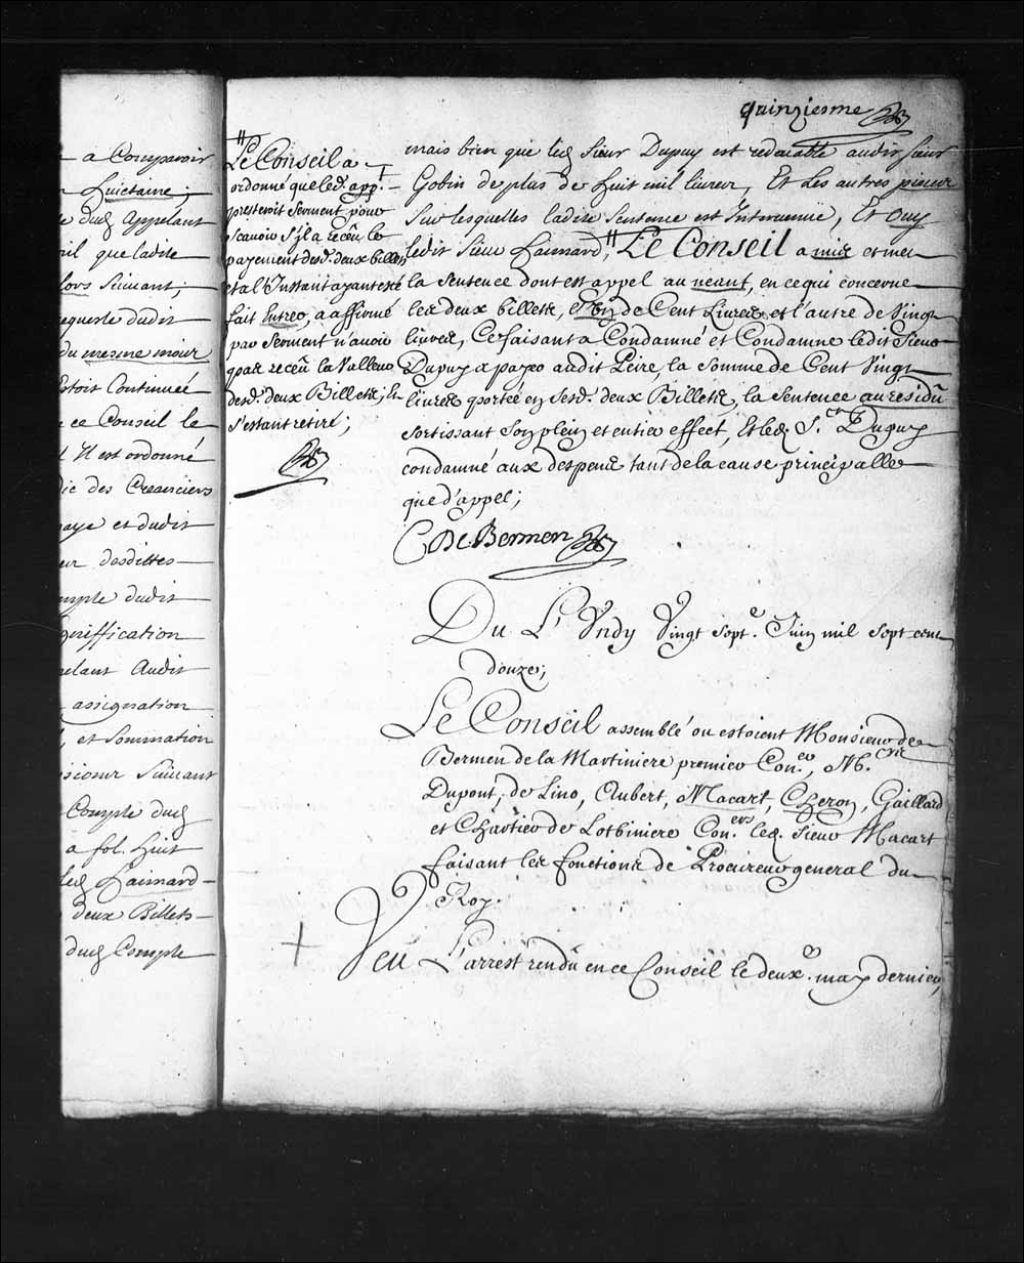 a Comparoir
huictaine;
dud. Appelant
que ladite
lors Suivant;
requeste dudit
du mesme mois
Continuée
ce Conseil le
Il est ordonné
des Creanciers
paye et dudit
desdittes
compte dudit
signiffication
Audit
assignation
et Sommation
Suivant
Compte dud.
a fol. huit
led. Haimard
deux Billets
dud. Compte
quinziesme
Le Conseil a
ordonné que led. app.t
presteroit Serment pour
scavoir s'jl a receu le
payement desd. deux billets
et a l'Instant ayant esté
fait Entrer, a affirmé
par Serment n'avoir
pas receu la Valleur
desd. deux Billets; Et
s'estant retiré;
mais bien que led. Sieur Dupuy est redevable audit sieur
Gobin de plus de huit mil livres, Et les autres pieces
Sur lesquelles ladite Sentence est Intervenüe, Et Ouy
ledit Sieur Haimard, Le Conseil a mis et met
la Sentence dont est appel au neant, en ce qui concerne
les deux billets, et l'autre de Vingt
livres, Ce faisant a Condamné et Condamne ledit Sieur
Dupuy a payer audit Peire, la Somme de Cent Vingt
livres portée en Sesd. deux Billets, la Sentence au residu
Sortissant Son plein et entier effect, Et led. S.r Dupuy
condamné aux despens tant de la cause principalle
que d'appel;
C De Bermen
Du Lundy Vingt Sept.e Juin mil Sept cent
douze;
Le Conseil assemblé ou estoient Monsieur de
Bermen de la Martiniere premier Con.er, M.es
Dupont, de Lino, Aubert, Macart, Cheron, Gaillard
et Chartier de Lotbiniere Con.ers led. Sieur Macart
faisant les fonctions de Procureur general du
Roy.
Veu L'arrest rendu en ce Conseil le deux.e may dernier,